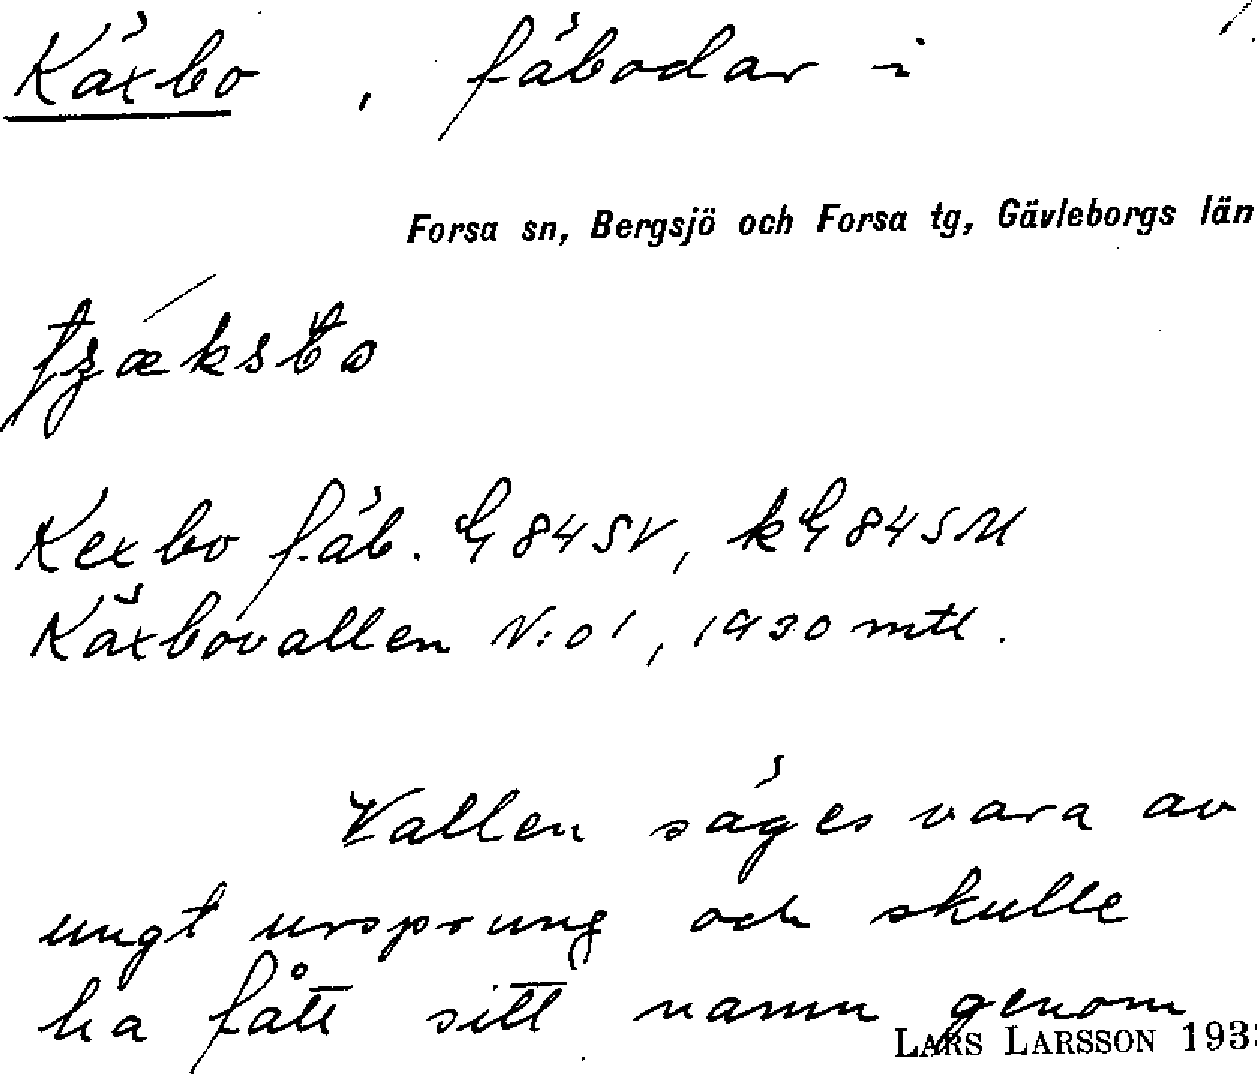 Käxbo, fäbodar i
Forsa sn, Bergsjö och Forsa tg, Gävleborgs län
Kexbo fäb. G 84 SV, kG 84 SM
Käxbovallen N:o 1, 1930 mtl.
Vallen säges vara av
ungt ursprung och skulle
ha fått sitt namn genom
LARS LARSSON 193